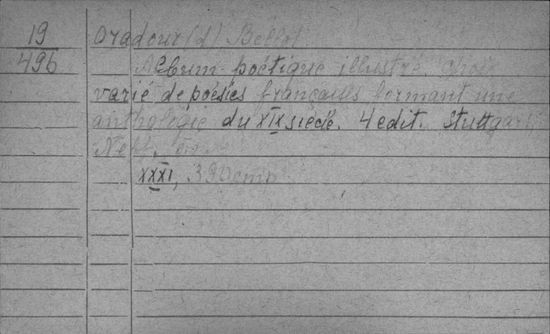 19 Oradour (d) Bellot
496 Album poétique illustré choix
varié de poésies françaises formant une
anthologie du XIX siècle. 4 edit. Stuttgart,
Neff,
XXXI, 390